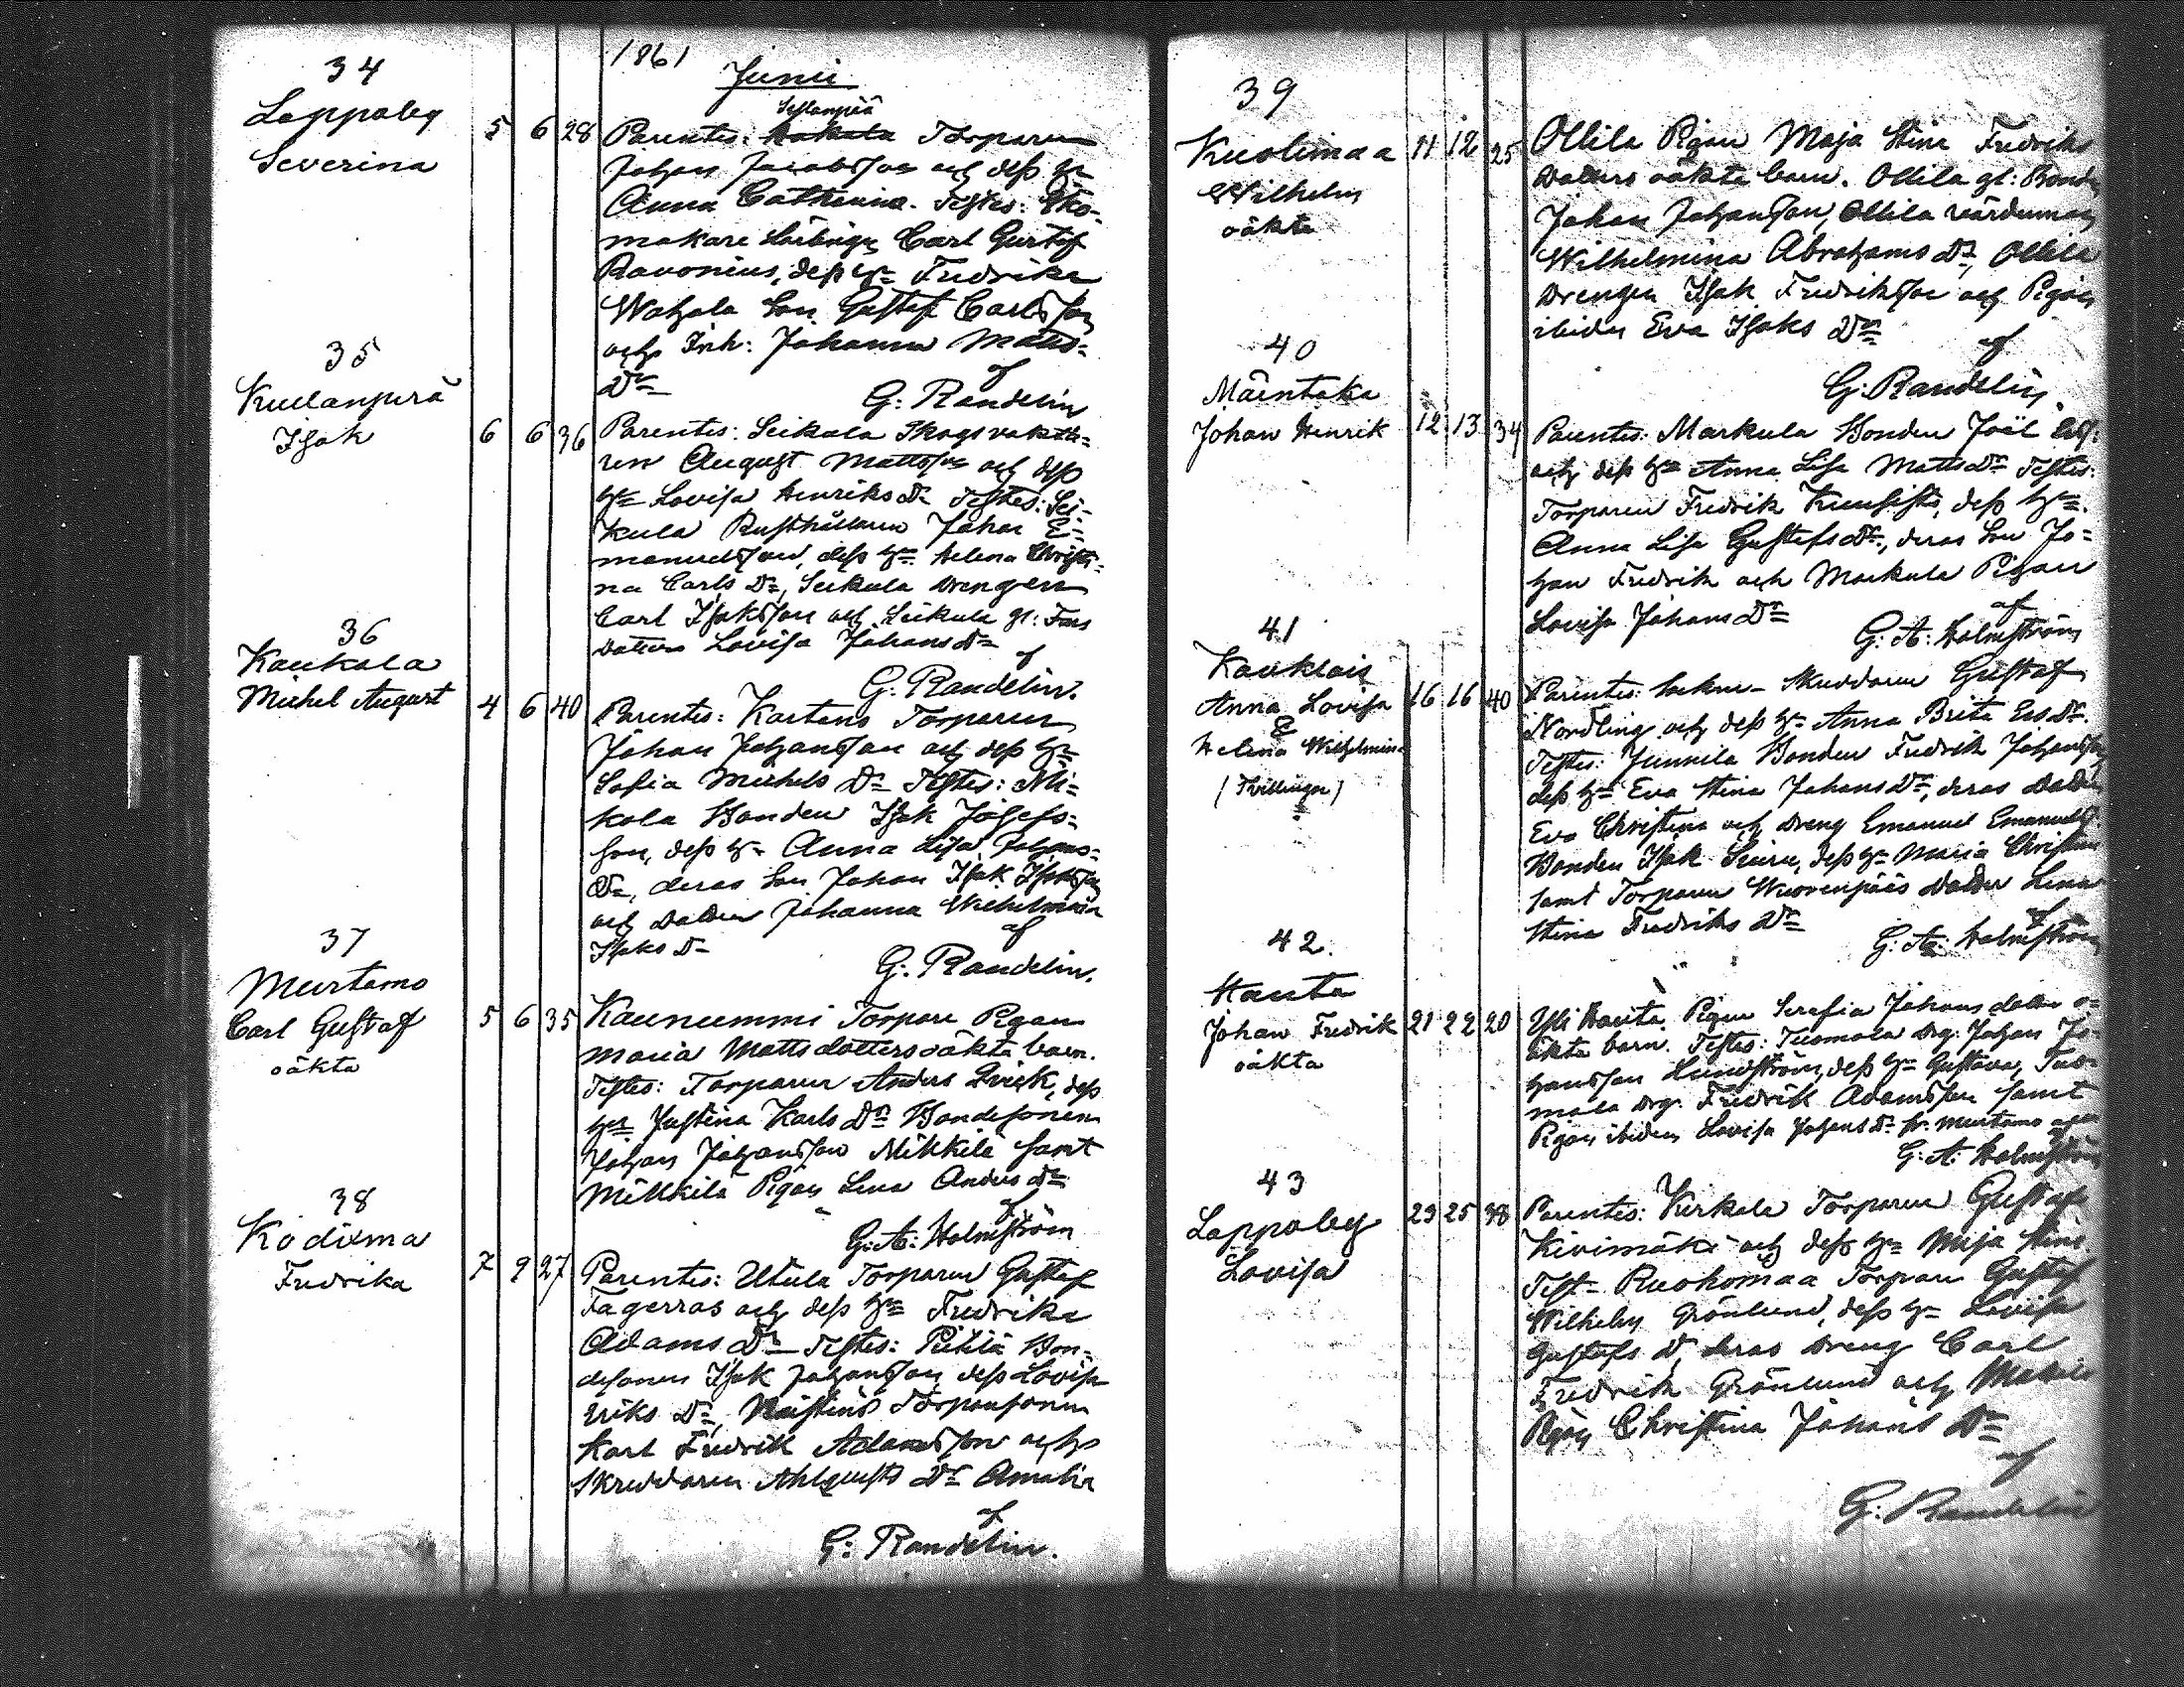 1861
Junii
34
Lappoley
Severina
5 6 28
Parentes: Torparen
Johan Jacobsson och dess h:u
Anna Catharina. Testes: Sko-
makare Lärling Carl Gustaf
Ravonius, dess h:u Fredrika
Wahala Son Gustaf Carlsson
och Inh: Johanna Matts-
D:r
af
G: Randelin
35
Kullanperä
Isak
6 6 36
Parentes: Seikula Skogsvakta-
ren August Mattsson och dess
h:u Lovisa Henriks D:r Testes: Sei-
kula Rusthållaren Johan E-
manuelsson, dess h:u Helena Christi-
na Carls D:r, Seikula Drengen
Carl Isaksson och Seikula gl:
Dotter Lovisa Johans D:r
af
G: Randelin.
36
Kaukola
Michel August
4 6 40
Parentes: Kartano Torparen
Johan Johansson och dess h:u
Sofia Michels D:r Testes: Mi-
kola Bonden Isak Josefs-
son, dess h:u Anna Lisa Johans-
D:r, deras Son Johan Isak Isaksson
och Dotter Johanna Wilhelmina
Isaks D:r
af
G: Randelin.
37
Murtamo
Carl Gustaf
oäkta
5 6 35
Kaunummi Torpare Pigan
Maria Matts dotters oäkta barn.
Testes: Torparen Anders Qvick, dess
h:u Justina Karls D:r Bondesonen
Johan Johansson Mikkilä samt
Mikkilä Pigan Lena Anders D:r
af
G: A: Holmström
38
Kodixma
Fredrika
7 9 27
Parentes: Utula Torparen Gustaf
Fagerros och dess h:u Fredrika
Adams D:r Testes: Pietilä Bon-
desonen Isak Johansson, dess Lovisa
Eriks D:r, Torparesonen
Karl Fredrik Adamsson och
Skreddaren Ahlqvists D:r Amalia
af
G: Randelin.
39
Kuolimaa
Wilhelm
oäkta
11 12 25
Ollila Pigan Maja Stina Fredriks
Dotters oäkta barn. Ollila gl: Bond
Johan Johansson, Ollila värdinnan
Wilhelmina Abrahams D:r, Ollila
Drengen Isak Fredriksson och Pigan
ibidem Eva Isaks D:r
af
G: Randelin
40
Mäentaka
Johan Henrik
12 13 34
Parentes: Markula Bonden Joël
och dess h:u Anna Lisa Matts D:r Testes:
Torparen Fredrik Kuusisto, dess h:u
Anna Lisa Gustafs D:r, deras Son Jo-
han Fredrik och Markula Pigan
Lovisa Johans D:r
af
G: A: Holmström
41
Kauklais
Anna Lovisa
&
Helena Wilhelmina
(Tvillingar)
16 16 40
Parentes: Socken-Skreddaren Gustaf
Nordling och dess h:u Anna Brita Ers D:r.
Testes: Junnila Bonden Fredrik Johansson
dess h:u Eva Stina Johans D:r, deras Dotter
Eva Christina och Dreng Emanuel Emanuels
Bonden Isak, dess h:u Maria Christina
samt Torparen Dotter Lena
Stina Fredriks D:r
af
G: A: Holmström
42.
Hauta
Johan Fredrik
oäkta
21 22 20
Yli Hauta Pigan Serafia Johans dotter o-
äkta barn. Testes: Tuomola drg: Johan Jo-
hansson Lundström, dess h:u Gustava, Tuo-
mola drg: Fredrik Adamsson samt
Pigan ibidem Lovisa Johans D:r
G: A: Holmström
43
Lappoley
Lovisa
23 25 38
Parentes: Kirkola Torparen Gustaf
Kivimäki och dess h:u Maja Stina
Test- Ruohomaa Torpare Gustaf
Wilhelm Grönlund, dess h:u Lovisa
Gustafs D, deras Dreng Carl
Fredrik Grönlund och
Pigan Christina Johans D:r
af
G: Randelin